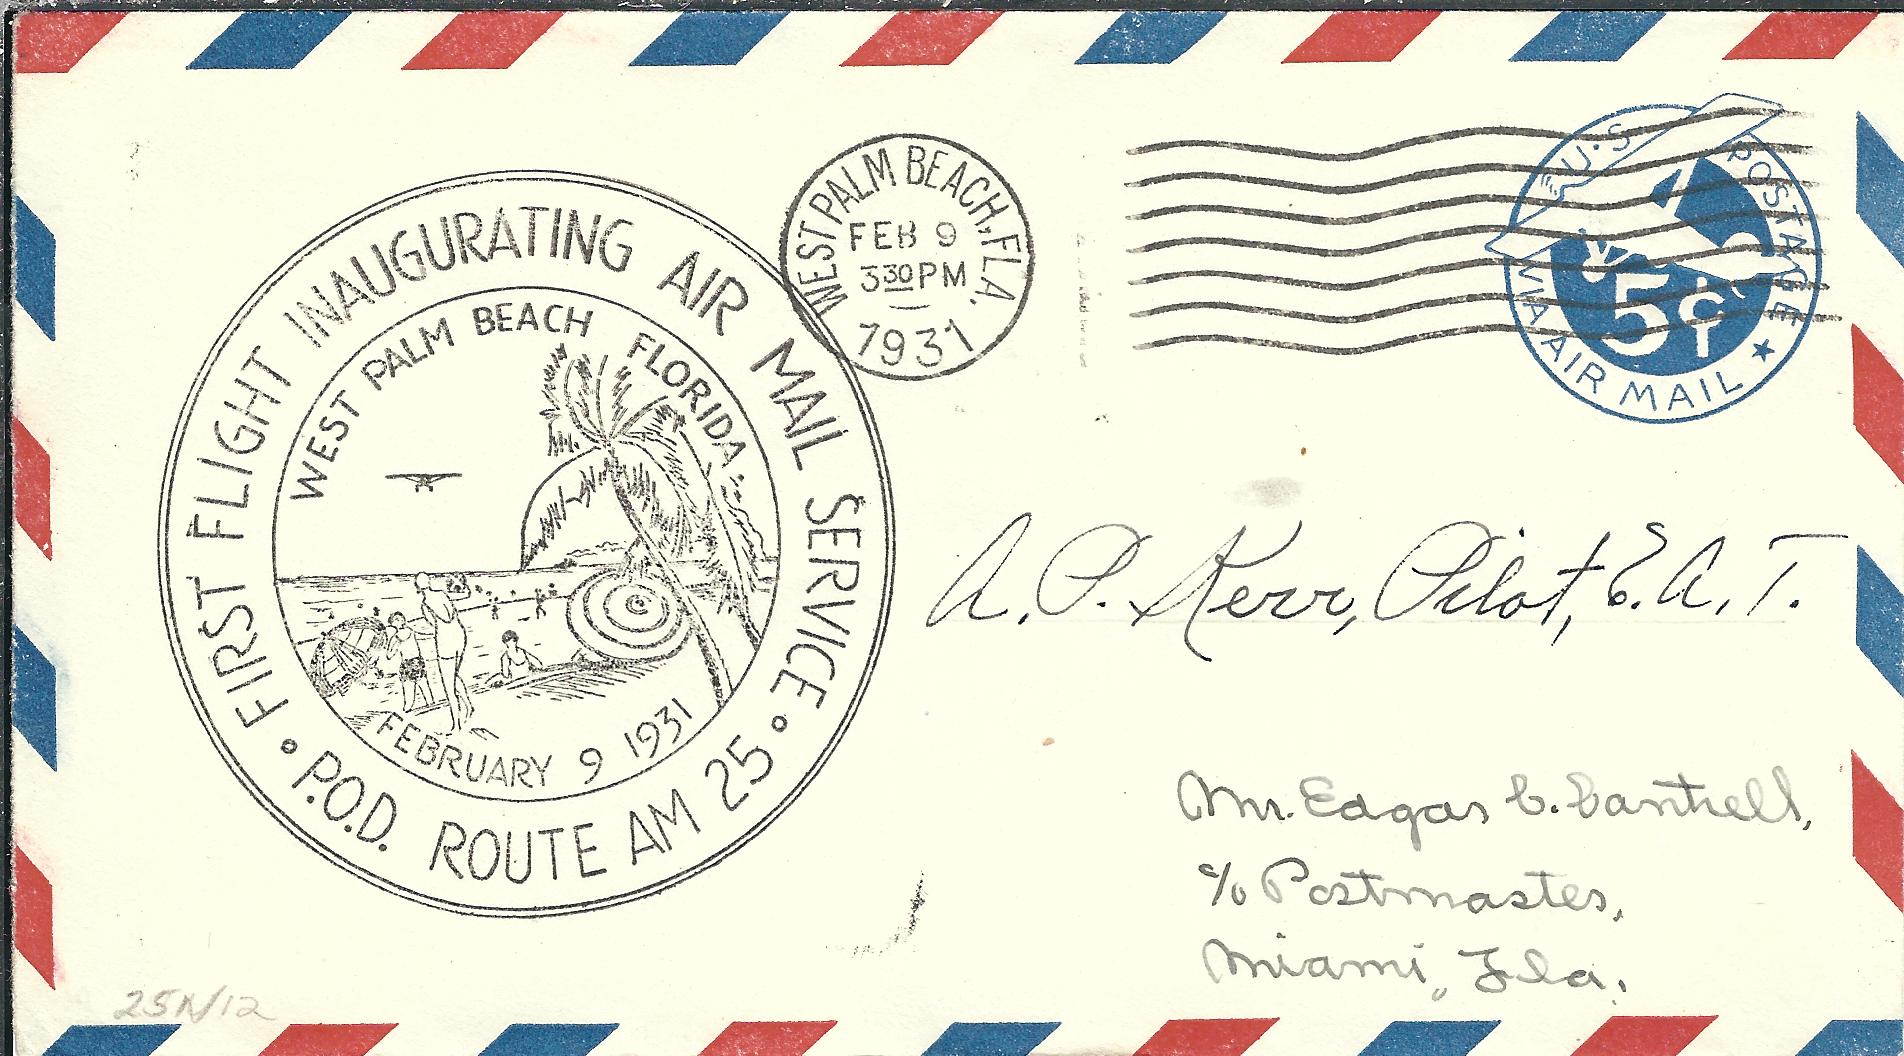 FIRST FLIGHT INAUGURATING AIR MAIL SERVICE
WEST PALM BEACH FLORIDA.
FEBRUARY 9 1931
• P.O.D. ROUTE AM 25 •
WEST PALM BEACH, FLA.
FEB 9
3 30 PM
1931
U.S. POSTAGE
5¢
VIA AIR MAIL ★
A. P. Kerr, Pilot, E. A. T.
Mr. Edgar C. Cantrell,
c/o Postmaster,
Miami, Fla.
25N/12